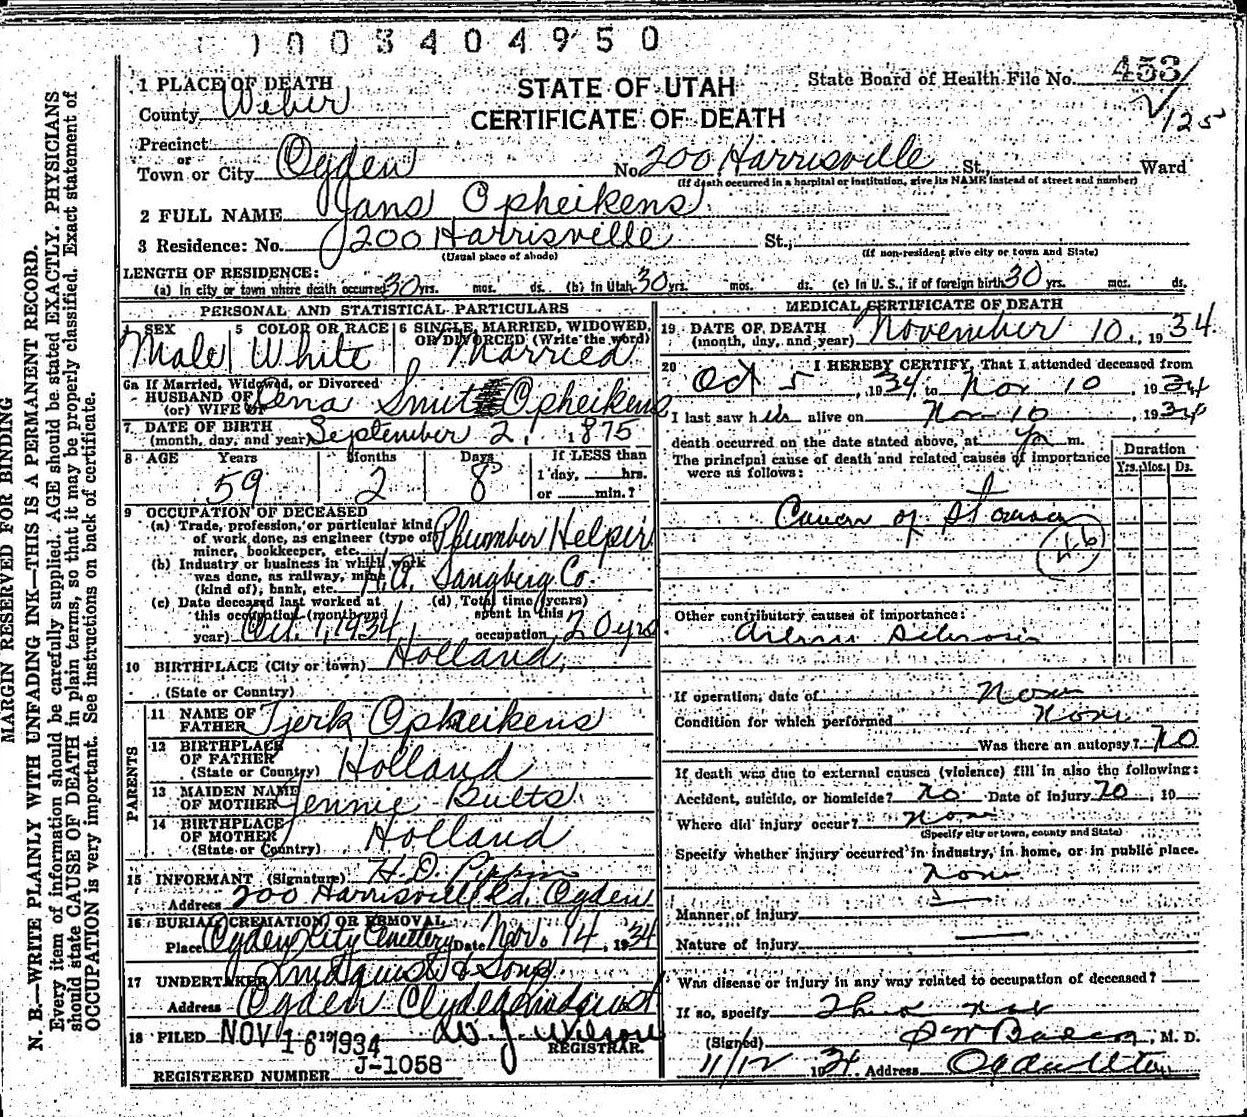 1003404950
1 PLACE OF DEATH
STATE OF UTAH
State Board of Health File No. 453
125
County Weber
CERTIFICATE OF DEATH
Precinct
or
Town or City Ogden No. 200 Harrisville St., Ward
(If death occurred in a hospital or institution, give its NAME instead of street and number)
2 FULL NAME Jans Opheikens
3 Residence: No. 200 Harrisville St.,
(Usual place of abode) (If non-resident give city or town and State)
LENGTH OF RESIDENCE:
(a) In city or town where death occurred 30 yrs. mos. ds. (b) In Utah 30 yrs. mos. ds. (c) In U. S., if of foreign birth 30 yrs. mos. ds.
PERSONAL AND STATISTICAL PARTICULARS
4 SEX 5 COLOR OR RACE 6 SINGLE, MARRIED, WIDOWED,
OR DIVORCED (Write the word)
Male White Married
6a If Married, Widowed, or Divorced
HUSBAND OF
(or) WIFE OF Lena Smit Opheikens
7 DATE OF BIRTH
(month, day, and year) September 2, 1875
8 AGE Years Months Days If LESS than
1 day, hrs.
or min.?
59 2 8
9 OCCUPATION OF DECEASED
(a) Trade, profession, or particular kind
of work done, as engineer (type of
miner, bookkeeper, etc. Plumber Helper
(b) Industry or business in which work
was done, as railway, mine
(kind of), bank, etc. H. A. Sangberg Co.
(c) Date deceased last worked at
this occupation (month and
year) Oct. 1, 1934
(d) Total time (years)
spent in this
occupation 20 yrs
10 BIRTHPLACE (City or town) Holland,
(State or Country)
PARENTS
11 NAME OF
FATHER Tjerk Opheikens
12 BIRTHPLACE
OF FATHER
(State or Country) Holland
13 MAIDEN NAME
OF MOTHER Jennie Bults
14 BIRTHPLACE
OF MOTHER
(State or Country) Holland
15 INFORMANT (Signature) H. D. Pippin
Address 200 Harrisville Rd. Ogden
16 BURIAL, CREMATION, OR REMOVAL
Place Ogden City Cemetery Date Nov. 14, 1934
17 UNDERTAKER Lindquist & Sons
Address Ogden Clyde Lindquist
18 FILED NOV 16 1934 W. J. Wilson
REGISTRAR.
REGISTERED NUMBER J-1058
MEDICAL CERTIFICATE OF DEATH
19 DATE OF DEATH
(month, day, and year) November 10, 1934
20 I HEREBY CERTIFY, That I attended deceased from
Oct 5, 1934, to Nov 10, 1934
I last saw h alive on Nov 10, 1934
death occurred on the date stated above, at m.
The principal cause of death and related causes of importance
were as follows:
Duration
Yrs. Mos. Ds.
Cancer of Stomach
46
Other contributory causes of importance:
Arterio Sclerosis
If operation, date of None
Condition for which performed None
Was there an autopsy? no
If death was due to external causes (violence) fill in also the following:
Accident, suicide, or homicide? no Date of injury no, 19
Where did injury occur? None
(Specify city or town, county and State)
Specify whether injury occurred in industry, in home, or in public place.
None
Manner of Injury
Nature of Injury
Was disease or injury in any way related to occupation of deceased?
If so, specify not
(Signed) M. D.
11/12 1934 Address Ogden Utah
MARGIN RESERVED FOR BINDING
N. B.—WRITE PLAINLY WITH UNFADING INK—THIS IS A PERMANENT RECORD.
Every item of information should be carefully supplied. AGE should be stated EXACTLY. PHYSICIANS
should state CAUSE OF DEATH in plain terms, so that it may be properly classified. Exact statement of
OCCUPATION is very important. See instructions on back of certificate.